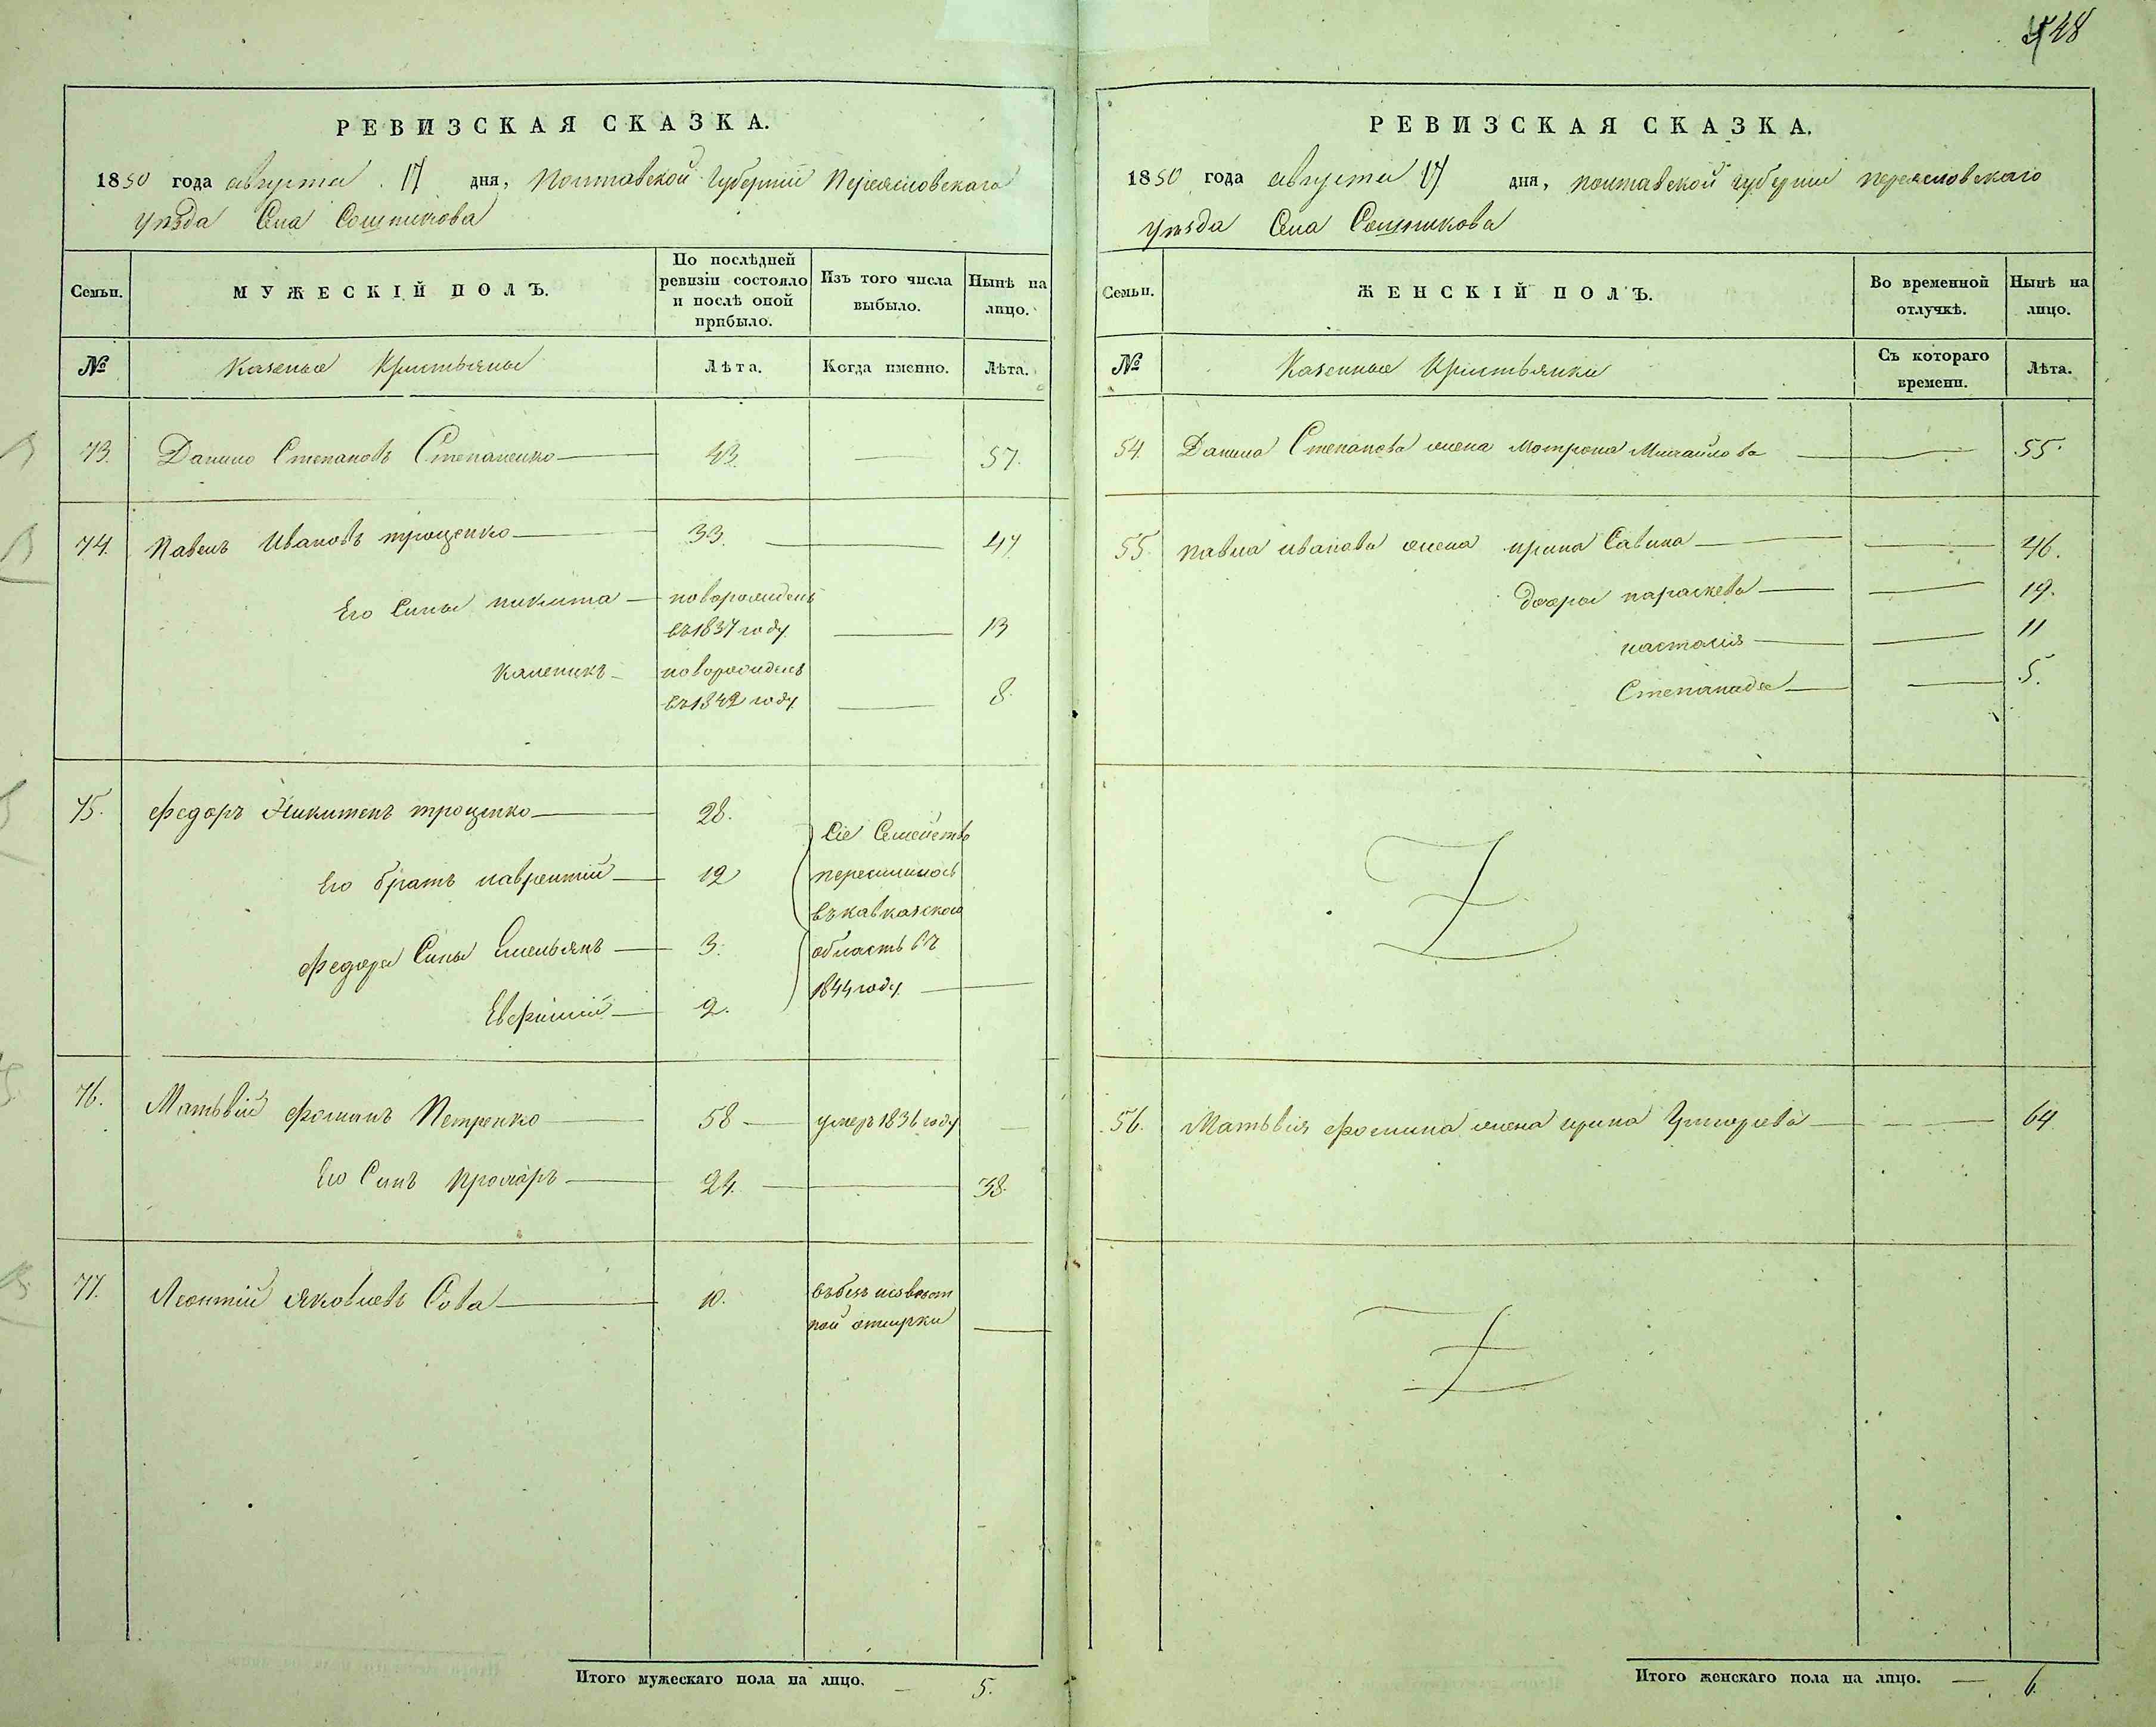 548
РЕВИЗСКАЯ СКАЗКА.
1850 года августа 17 дня, Полтавской Губернии Переясловскаго
уѣзда Села Сошникова
Семьи.
МУЖЕСКІЙ ПОЛЪ.
По послѣдней
ревизіи состояло
и послѣ оной
прибыло.
Изъ того числа
выбыло.
Нынѣ на
лицо.
№
Казеные Крестьяны
Лѣта.
Когда именно.
Лѣта.
73. Данило Степановъ Степаненко 43. 57.
74. Павелъ Ивановъ троценко 33. 47
Его Сины никита новорожденъ
въ 1837 году 13
Каленикъ новорожденъ
въ 1842 году 8.
75. Федоръ Никитенъ троценко 28.
Сіе Семейство
Его братъ лаврентій 12 переселилось
въ кавказскою
Федора Сины Емельянъ 3. область въ
1844 году
Евфимій 2.
76. Матьвій Фоминъ Петренко 58 умер 1836 году
Его Синъ Прохоръ 24. 38.
77. Леонтій Яковлевъ Сова 10. въ безъ извѣст
ной отлучки
Итого мужескаго пола на лицо. 5.
РЕВИЗСКАЯ СКАЗКА.
1850 года августа 17 дня, полтавской губернии переясловскаго
уѣзда Села Сошникова
Семьи.
ЖЕНСКІЙ ПОЛЪ.
Во временной
отлучкѣ.
Нынѣ на
лицо.
№
Казенные Крестьянки
Съ котораго
времени.
Лѣта.
54. Данила Степанова жена Мотрона Михайлова 55.
55. павла иванова жена ирина Савина 46.
дочры параскева 19.
настасія 11
Степанида 5.
56. Матьвія Фомина жена ирина 64
Итого женскаго пола на лицо. 6.